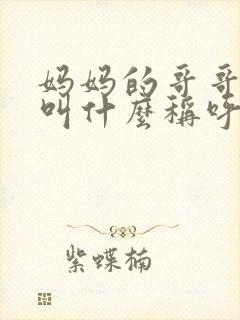 妈妈的哥哥
叫什麼稱呼
紫蝶楠